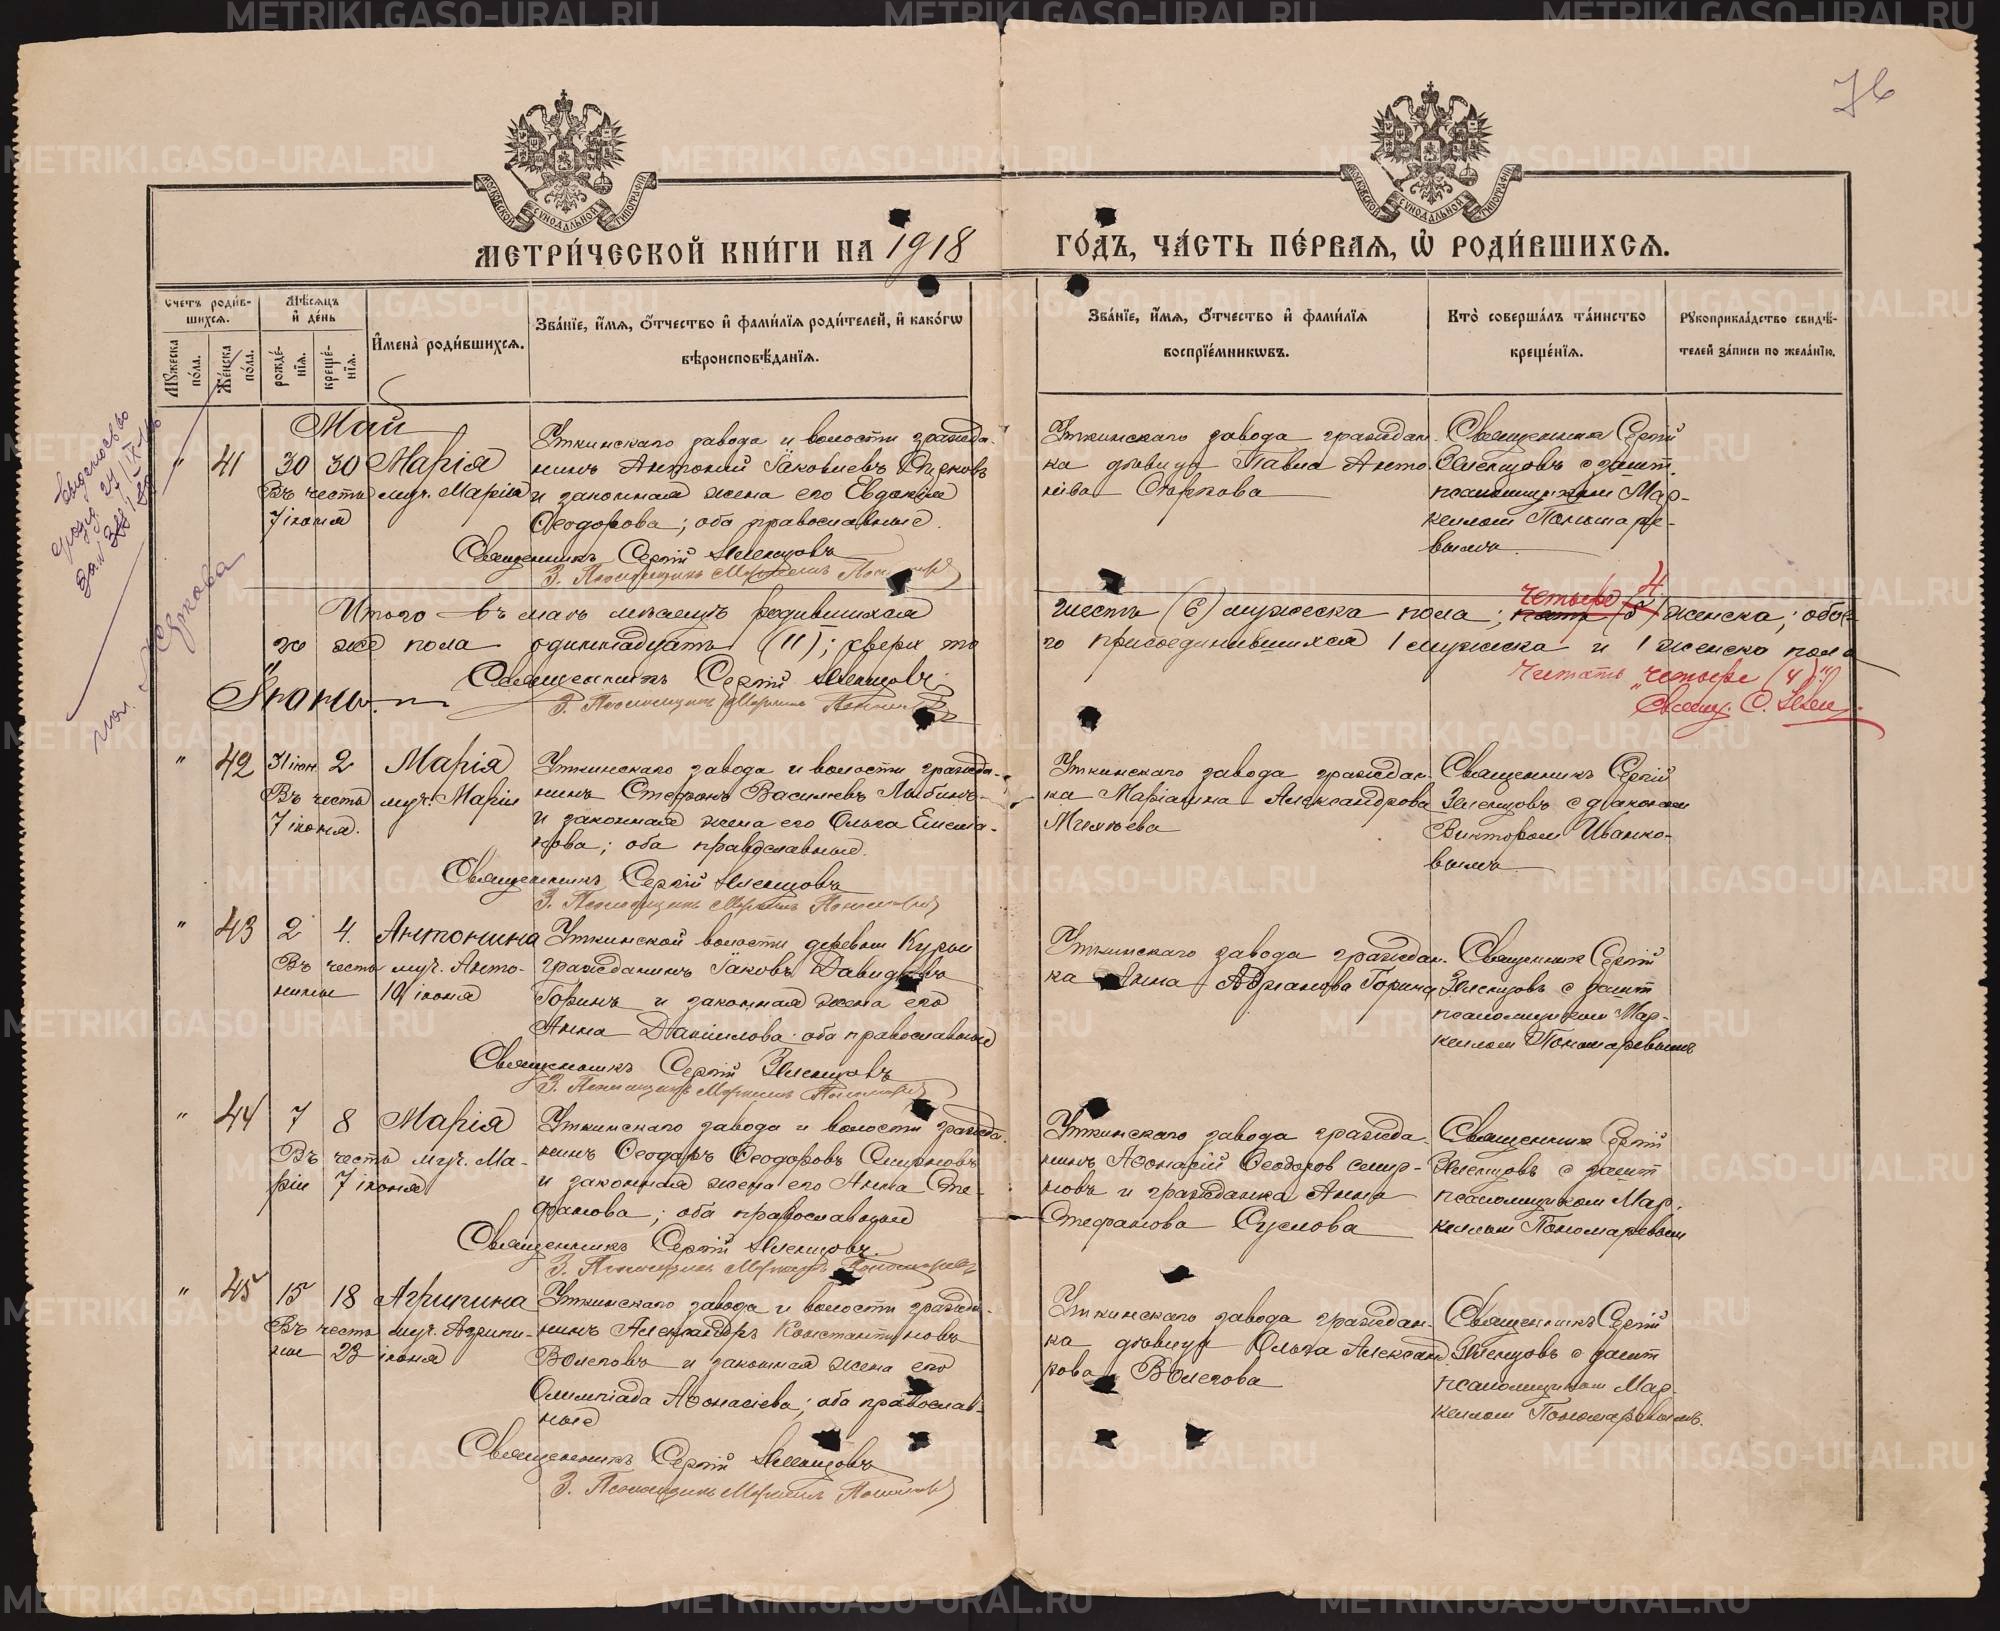 76
МОСКОВСКОЙ СѴНОДАЛЬНОЙ ТИПОГРАФІИ
МОСКОВСКОЙ СѴНОДАЛЬНОЙ ТИПОГРАФІИ
МЕТРИ́ЧЕСКОЙ КНИ́ГИ НА 1918 ГО́ДЪ, ЧА́СТЬ ПЕ́РВАЯ, Ѡ҆ РОДИ́ВШИХСѦ.
Счетъ роди́вшихсѧ.
Мꙋжеска по́ла.
Же́нска по́ла.
Мѣсѧцъ и҆ де́нь
рожде́нїѧ.
креще́нїѧ.
И҆мена̀ роди́вшихсѧ.
Зва́нїе, и҆́мѧ, ѻ҆́тчество и҆ фами́лїѧ роди́телей, и҆ како́гѡ вѣроисповѣ́данїѧ.
Зва́нїе, и҆́мѧ, ѻ҆́тчество и҆ фами́лїѧ воспрїе́мникѡвъ.
Кто̀ соверша́лъ та́инство креще́нїѧ.
Рꙋкоприкла́дство свидѣ́телей за́писи по жела́нїю.
Май
" 41 30 30 Марія
Въ честь муч. Маріи
7 іюня
Уткинскаго завода и волости гражда-
нинъ Антоній Іаковлевъ
и законная жена его Евдокія
Ѳеодорова; оба православные.
Священникъ Сергій Зеленцовъ
З. Псаломщикъ Маркеллъ
Уткинскаго завода граждан-
ка дѣвица Павла Анто-
нова
Священник Сергій
Зеленцовъ с замт.
псаломщиком Мар-
келлом Пономаре-
вымъ
Итого въ маѣ мѣсяцѣ родившихся шесть (6) мужеска пола; пять (5) женска; обое-
четыре 4
го же пола одиннадцать (11); сверх то го присоединившихся 1 мужеска и 1 женска пола
Священникъ Сергій Зеленцовъ
З. Псаломщикъ Маркеллъ
Читать "четыре (4)"
Свящ. С. Зелен
Іюнь.
" 42 31 2 Марія
Въ честь муч. Маріи
7 іюня.
Уткинскаго завода и волости гражда-
нинъ Стефанъ Васильевъ
и законная жена его Ольга Емелья-
нова; оба православные.
Священникъ Сергій Зеленцовъ
З. Псаломщикъ Маркеллъ Пономарев
Уткинскаго завода граждан-
ка Маріанна Александрова
Михѣева
Священникъ Сергій
Зеленцовъ с діаконом
Виктором Иванко-
вымъ
" 43 2 4. Антонина
Въ честь муч. Анто-
нины 10 іюня
Уткинской волости деревни Курьи
гражданинъ Іаковъ Давидовъ
Горинъ и законная жена его
Анна Даниилова оба православные
Священникъ Сергій Зеленцовъ
З. Псаломщикъ Маркеллъ Пономарев
Уткинскаго завода граждан-
ка Анна Адріанова Горина
Священник Сергій
Зеленцовъ с замт
псаломщиком Мар-
келлом Пономаревымъ
" 44 7 8 Марія
Въ честь муч. Ма-
ріи 7 іюня
Уткинскаго завода и волости гражда-
нинъ Ѳеодоръ Ѳеодоровъ Смирновъ
и законная жена его Анна Сте-
фанова; оба православные
Священникъ Сергій Зеленцовъ.
З. Псаломщикъ Маркеллъ Пономарев
Уткинскаго завода гражда-
нинъ Аѳонасій Ѳеодоров Смир-
новъ и гражданка Анна
Стефанова Суслова
Священник Сергій
Зеленцовъ с замт
псаломщиком Мар-
келлом Пономаревым
" 45 15 18 Агрипина
Въ честь муч. Агрипи-
ны 23 іюня
Уткинскаго завода и волости гражда-
нинъ Александръ Константиновъ
Волеговъ и законная жена его
Олимпіада Аѳонасіева; оба православ-
ные
Священникъ Сергій Зеленцовъ
З. Псаломщикъ Маркеллъ
Уткинскаго завода граждан-
ка дѣвица Ольга Александ
рова Волегова
Священникъ Сергій
Зеленцовъ с замт
псаломщиком Мар-
келлом Пономаревымъ.
METRIKI.GASO-URAL.RU